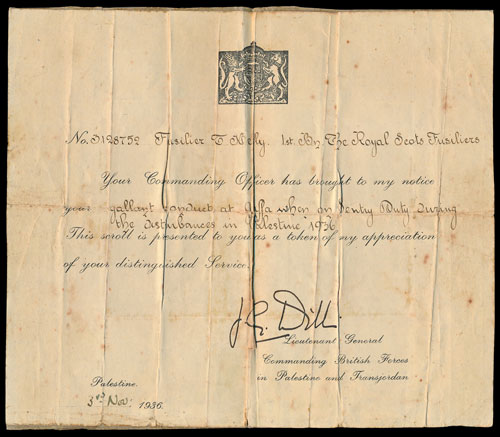 No. 3128752 Fusilier T. Kelly. 1st. Bn. The Royal Scots Fusiliers
Your Commanding Officer has brought to my notice
your gallant conduct at Jaffa when on Sentry Duty during
the disturbances in Palestine 1936
This scroll is presented to you as a token of my appreciation
of your distinguished Service.
J.G. Dill
Lieutenant General
Commanding British Forces
in Palestine and Transjordan
Palestine.
3rd Nov. 1936.